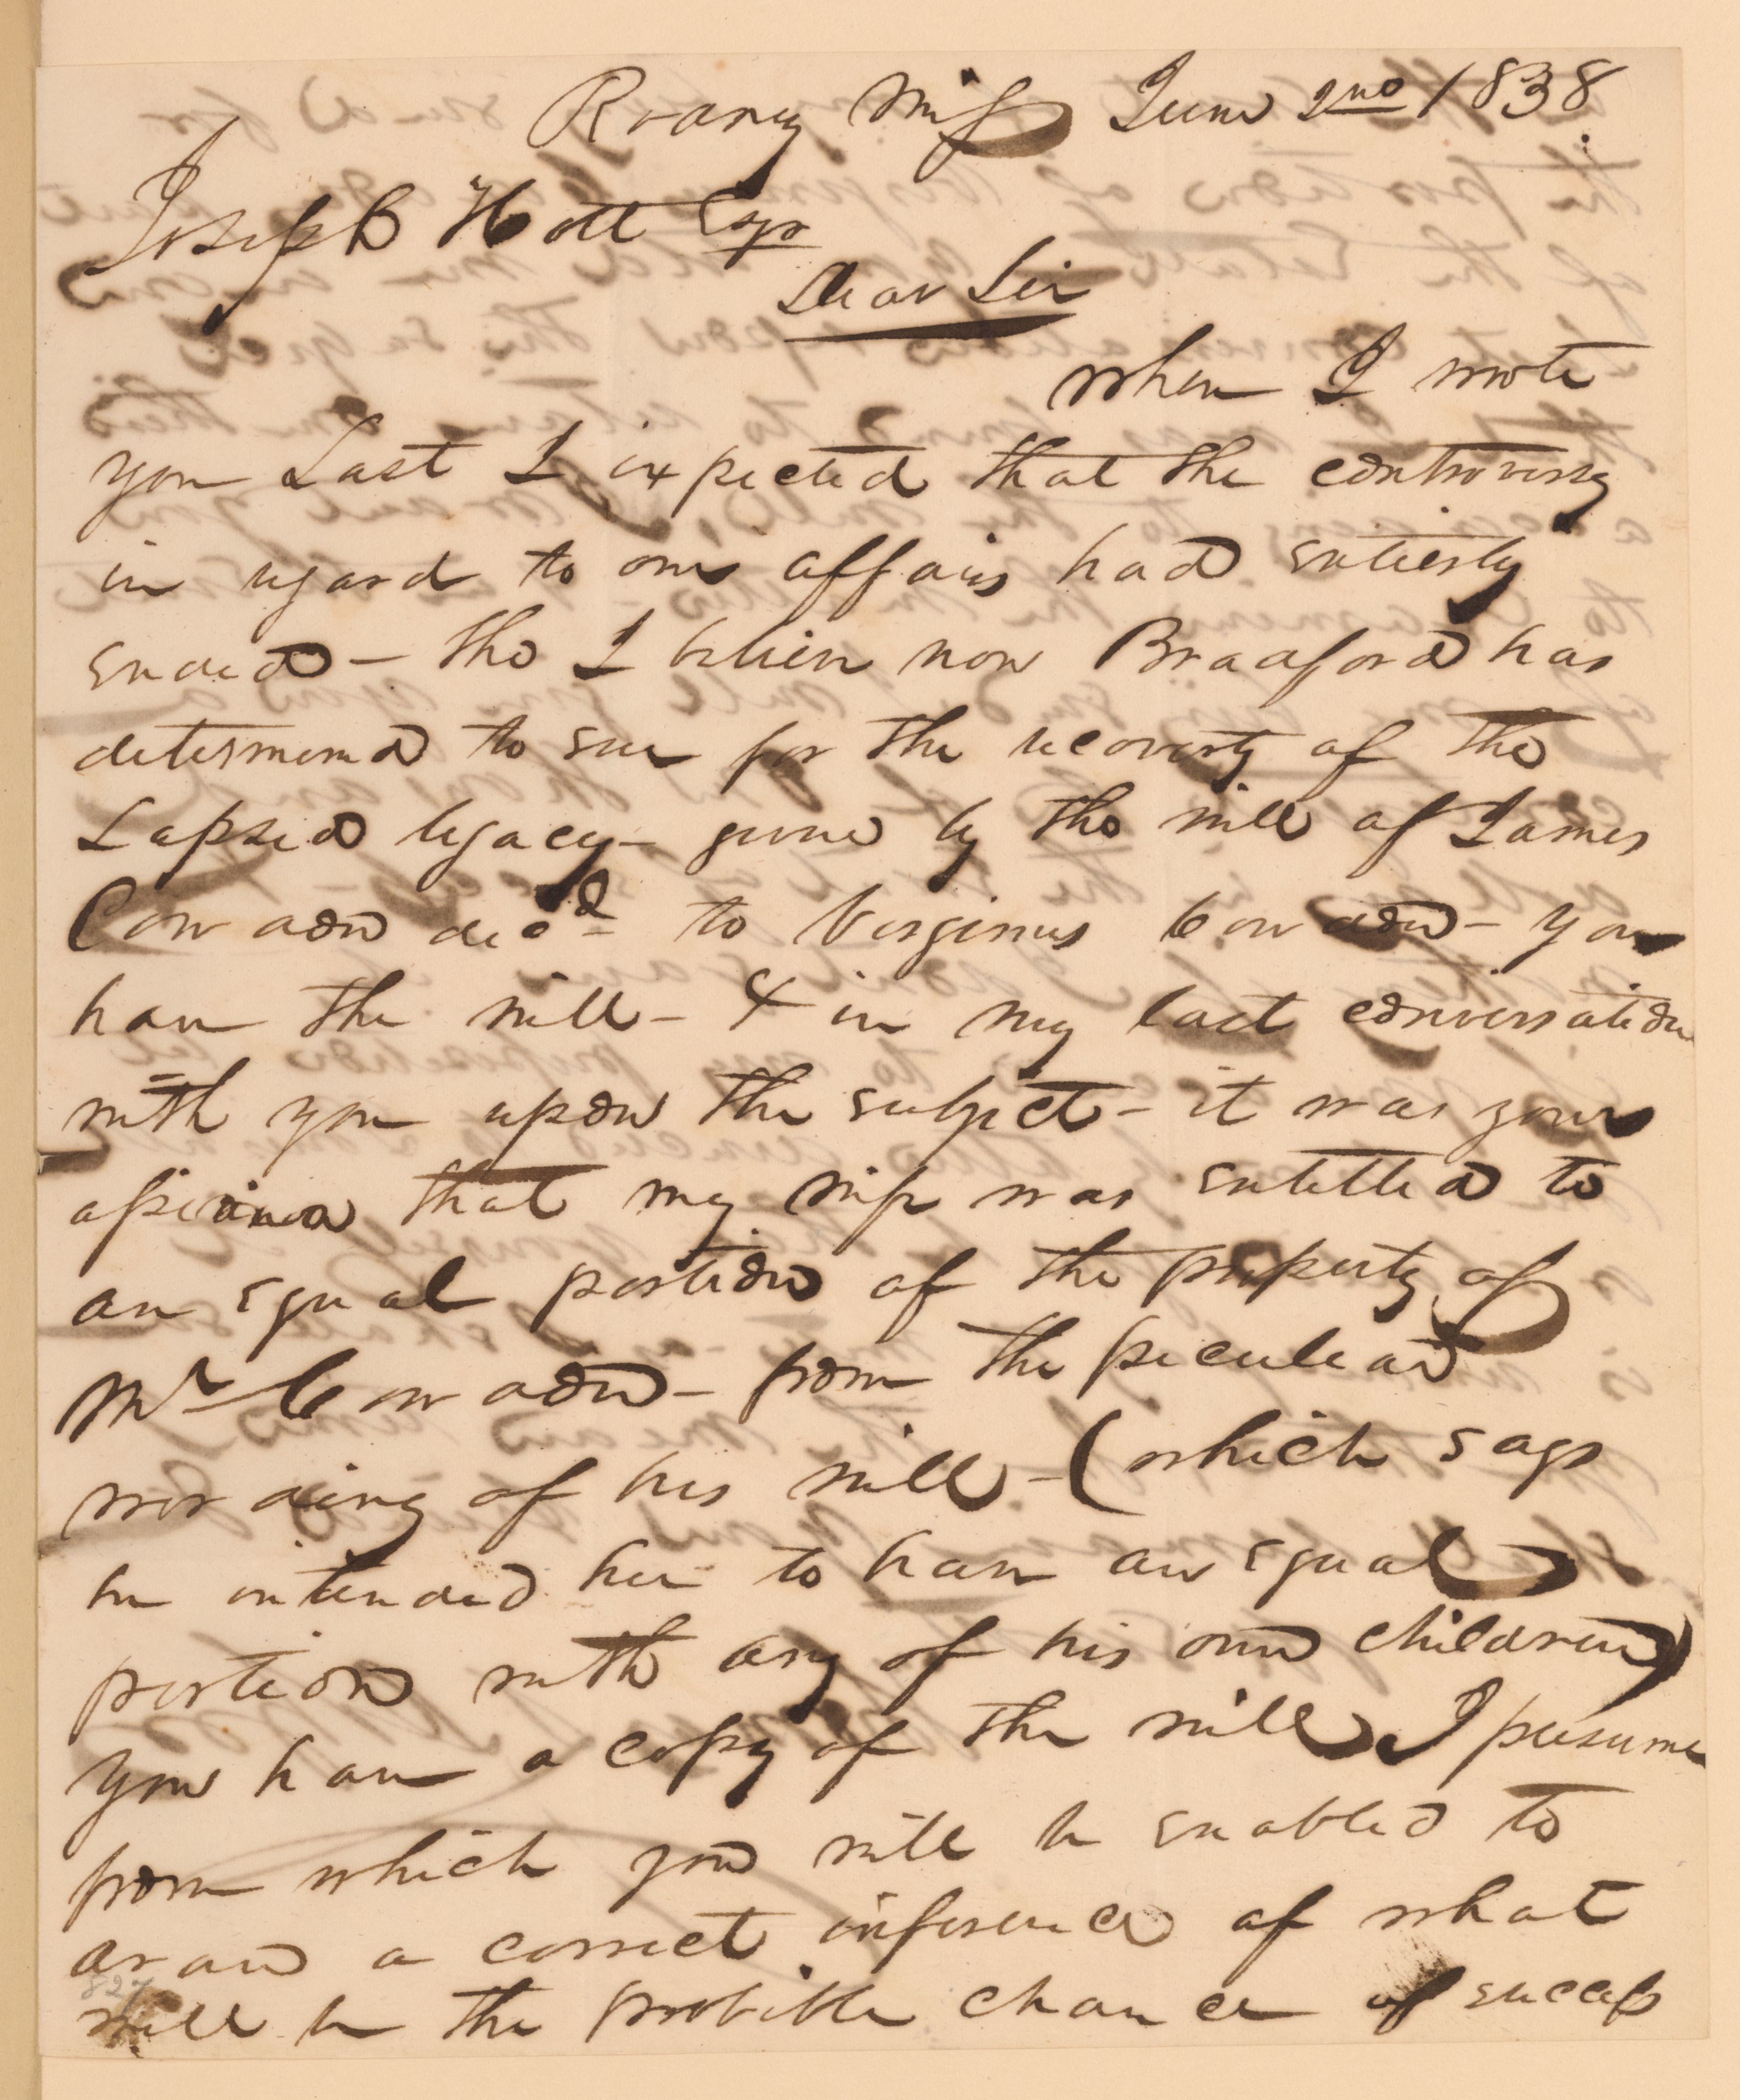 Roany Miss June 2nd 1838
Joseph Holt Esqr
Dear Sir
when I wrote
you Last I expected that the controversy
in regard to our affairs had entierly
ended – tho I believe now Bradford has
determened to sue for the recoverty of the
Lapsed legacy – given by the will of James
Cowadn decd to Virginius Cowadn – you
have the will – & in my last conversation
with you upon the subject – it was your
opinion that my wife was entitled to
an equal portion of the property of
Mr Cowadn – from the peculiar
wording of his will – (which says
he intended her to have an equal
portion with any of his own children)
you have a copy of the will I presume
from which you will be enabled to
draw a correct inference of what
will be the probible chance of success
827